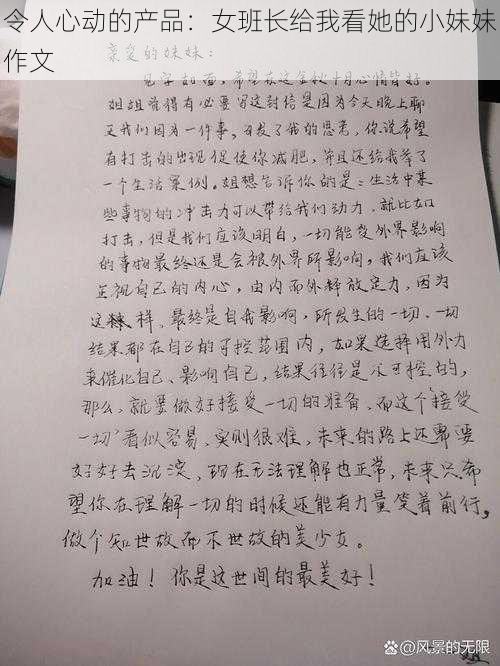 令人心动的产品：女班长给我看她的小妹妹
作文
亲爱的妹妹：
见字如面，希望在这金秋十月心情皆好。
姐姐觉得有必要写这封信是因为今天晚上聊
天我们因为一件事，引发了我的思考，你说希望
有打击的出现促使你减肥，并且还给我举了
一个生活案例。姐想告诉你的是：生活中某
些事物的冲击力可以带给我们动力，就比如
打击，但是我们应该明白，一切能受外界影响
的事物最终还是会被外界所影响，我们应该
正视自己的内心，由内而外释放定力，因为
这样，最终是自我影响，所发生的一切、一切
结果都在自己的可控范围内，如果选择用外力
来催化自己、影响自己，结果往往是不可控的，
那么，就要做好接受一切的准备，而这个“接受
一切”看似容易，实则很难，未来的路上还需要
好好去沉淀，现在无法理解也正常，未来只希
望你在理解一切的时候还能有力量笑着前行，
做个知世故而不世故的美少女。
加油！你是这世间的最美好！
@风景的无限